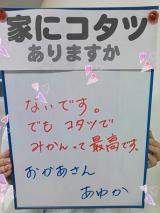 家にコタツ
ありますか
ないです。
でも コタツで
みかんって 最高です。
おかあさん
あゆか